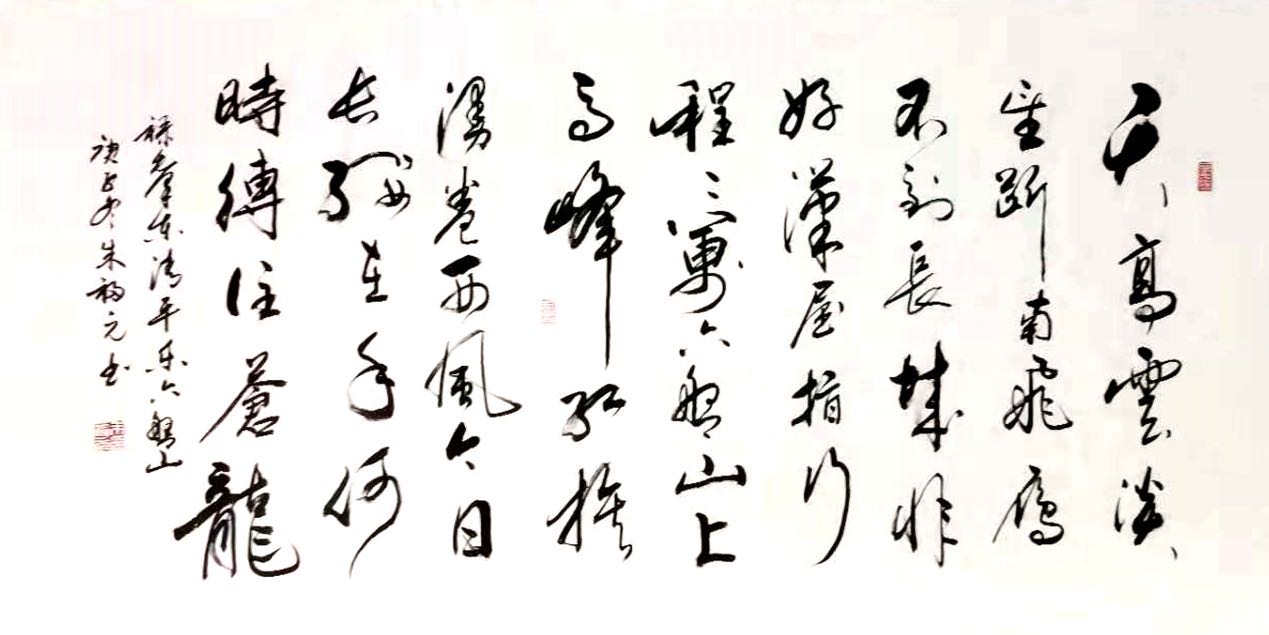 天高雲淡
望斷南飛雁
不到長城非
好漢屈指行
程二萬六盤山上
高峰紅旗
漫卷西風今日
長纓在手何
時縛住蒼龍
錄澤东清平乐六盤山
庚子冬朱福元书